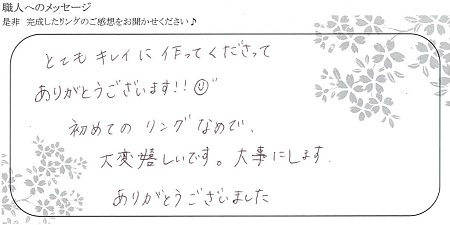 職人へのメッセージ
是非 完成したリングのご感想をお聞かせください♪
とても キレイに 作ってくださって
ありがとうございます!!
初めての リングなので、
大変嬉しいです。大事にします
ありがとうございました